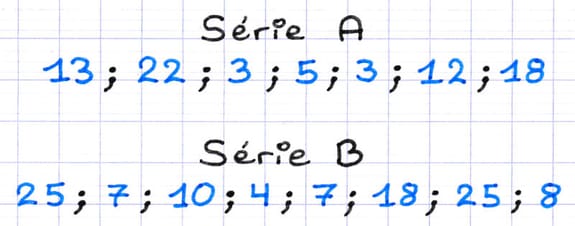 Série A
13 ; 22 ; 3 ; 5 ; 3 ; 12 ; 18
Série B
25 ; 7 ; 10 ; 4 ; 7 ; 18 ; 25 ; 8